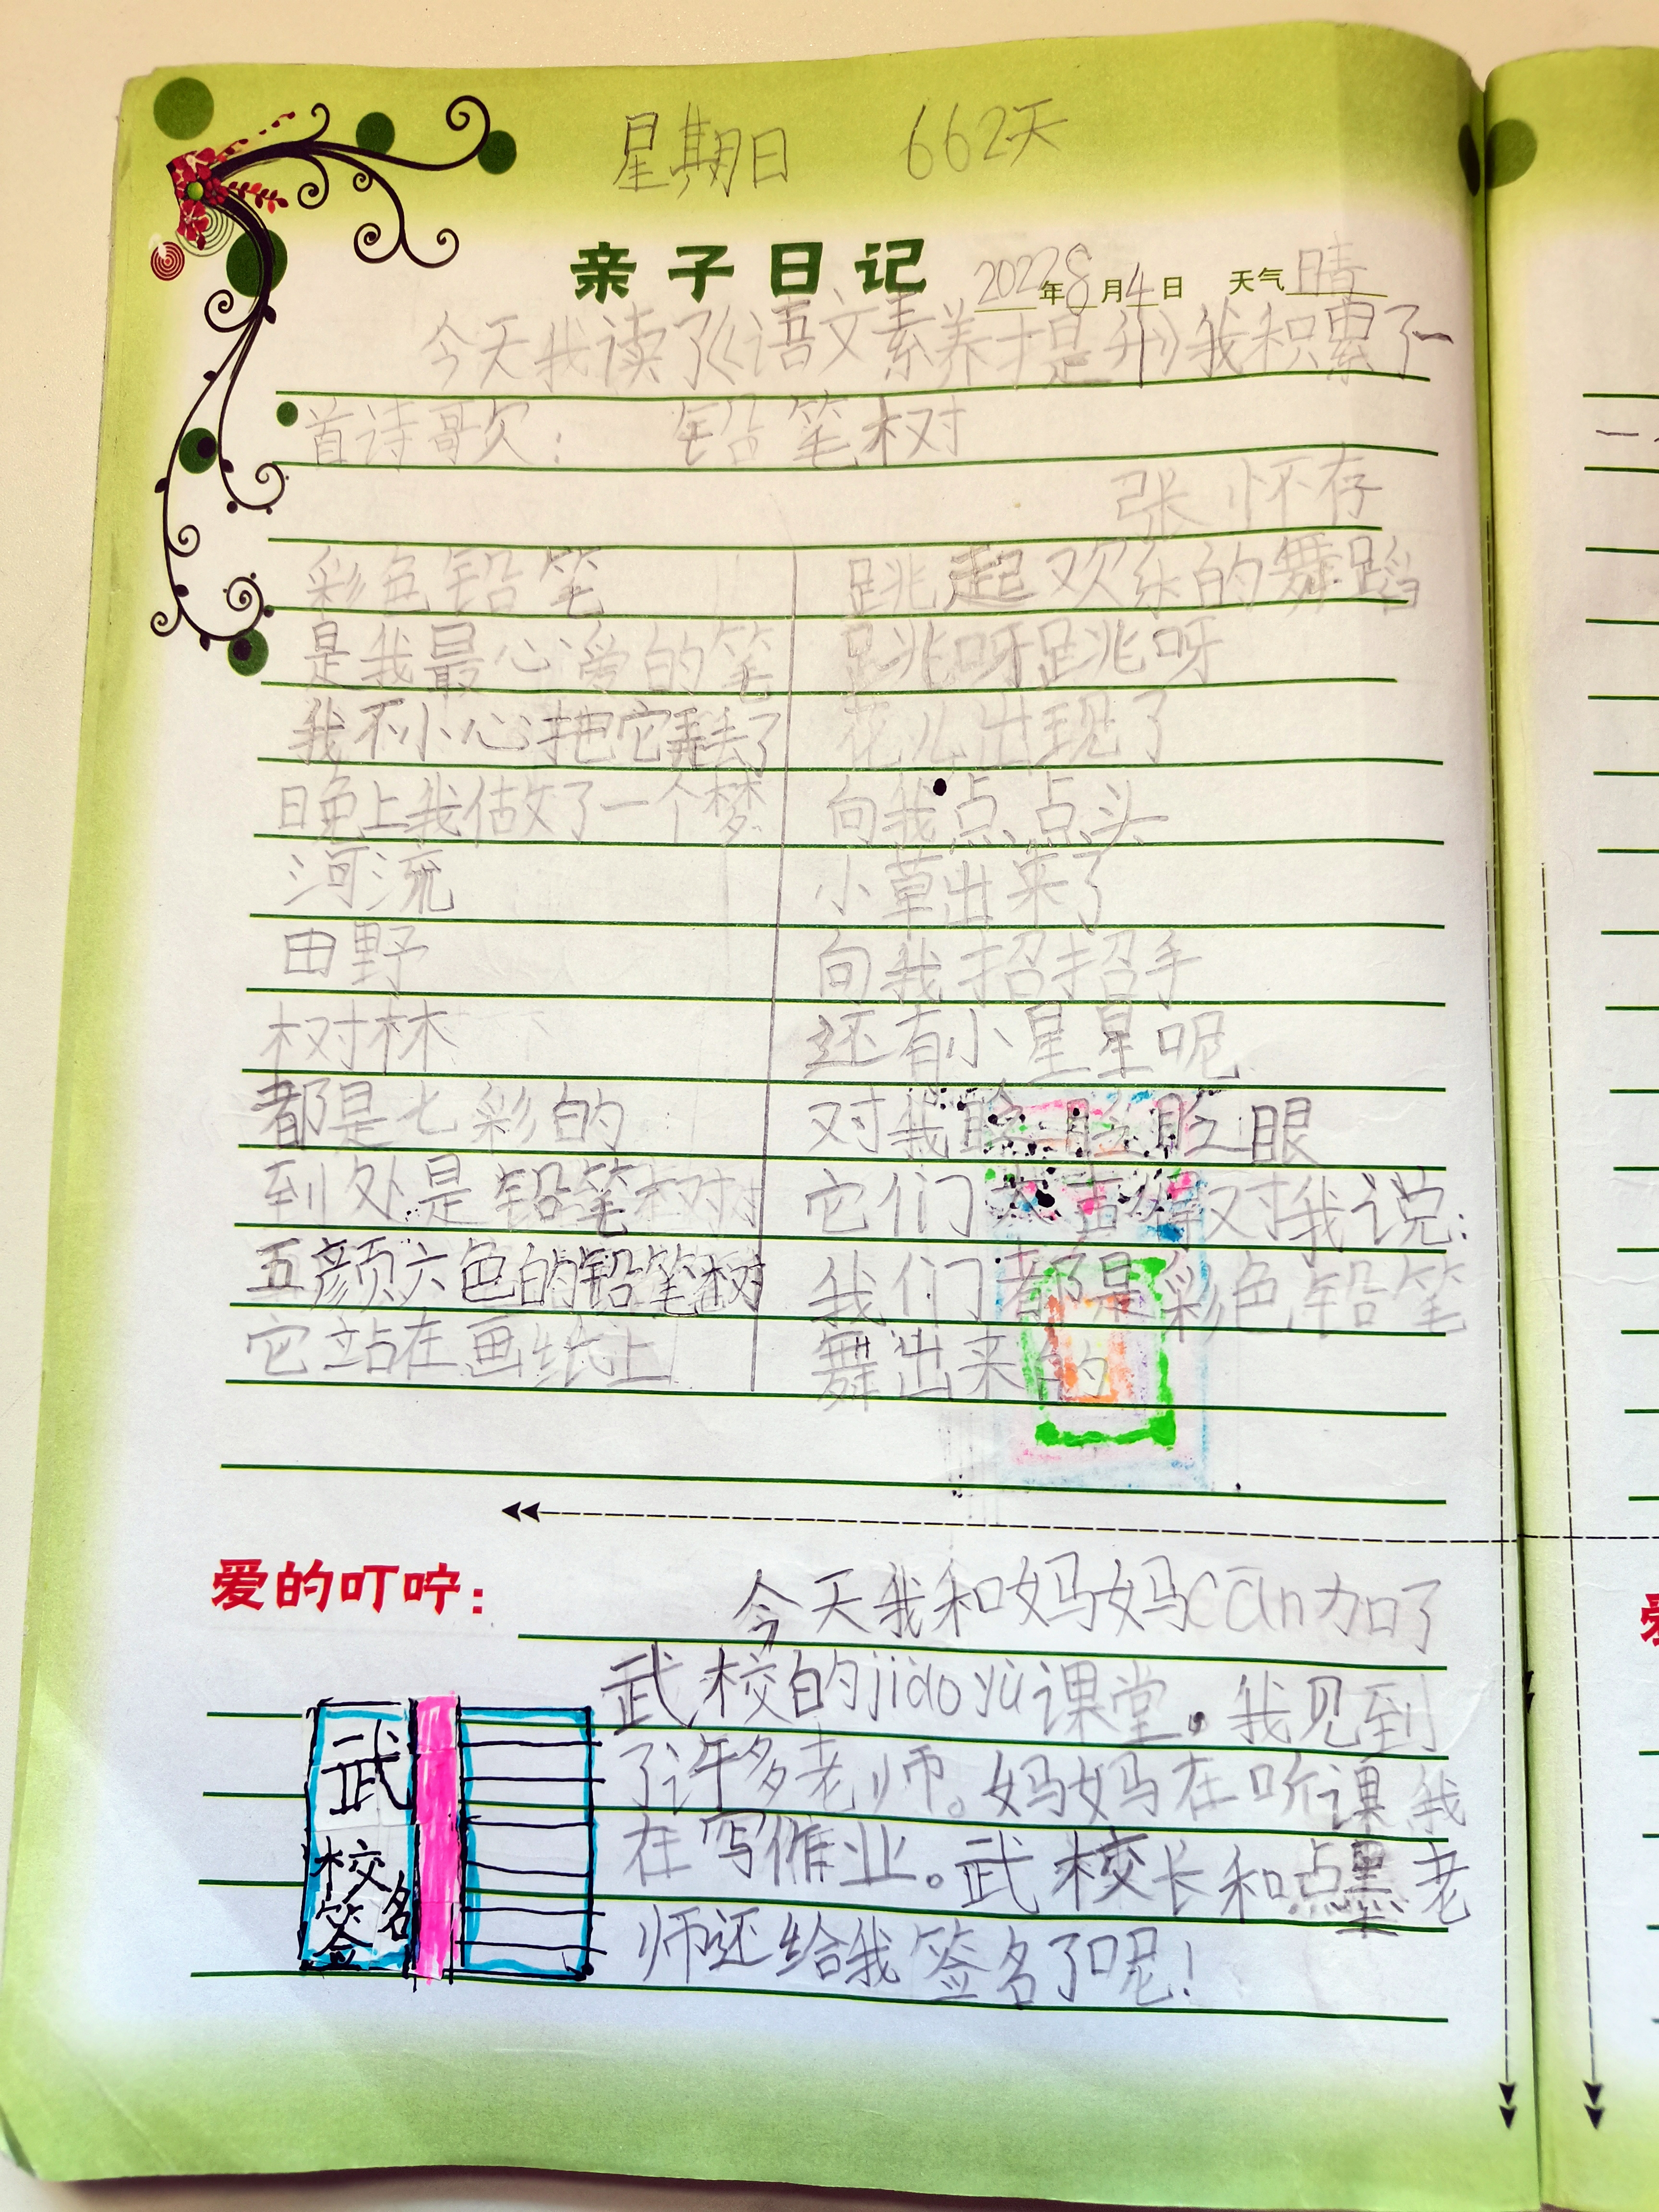 星期日 662天
亲子日记 2022年8月4日 天气晴
今天我读了《语文素养提升》我积累了一
首诗歌: 铅笔树
张怀存
彩色铅笔
是我最心爱的笔
我不小心把它弄丢了
晚上我做了一个梦
河流
田野
树林
都是七彩的
到处是铅笔树
五颜六色的铅笔树
它站在画纸上
跳起欢乐的舞蹈
跳呀跳呀
花儿出现了
向我点点头
小草出来了
向我招招手
还有小星星呢
对我眨眨眼
它们大声对我说:
我们都是彩色铅笔
舞出来的
爱的叮咛:
今天我和妈妈cān加了
武校的jiào yù课堂。我见到
了许多老师。妈妈在听课我
在写作业。武校长和点墨老
师还给我签名了呢!
武
校
签名